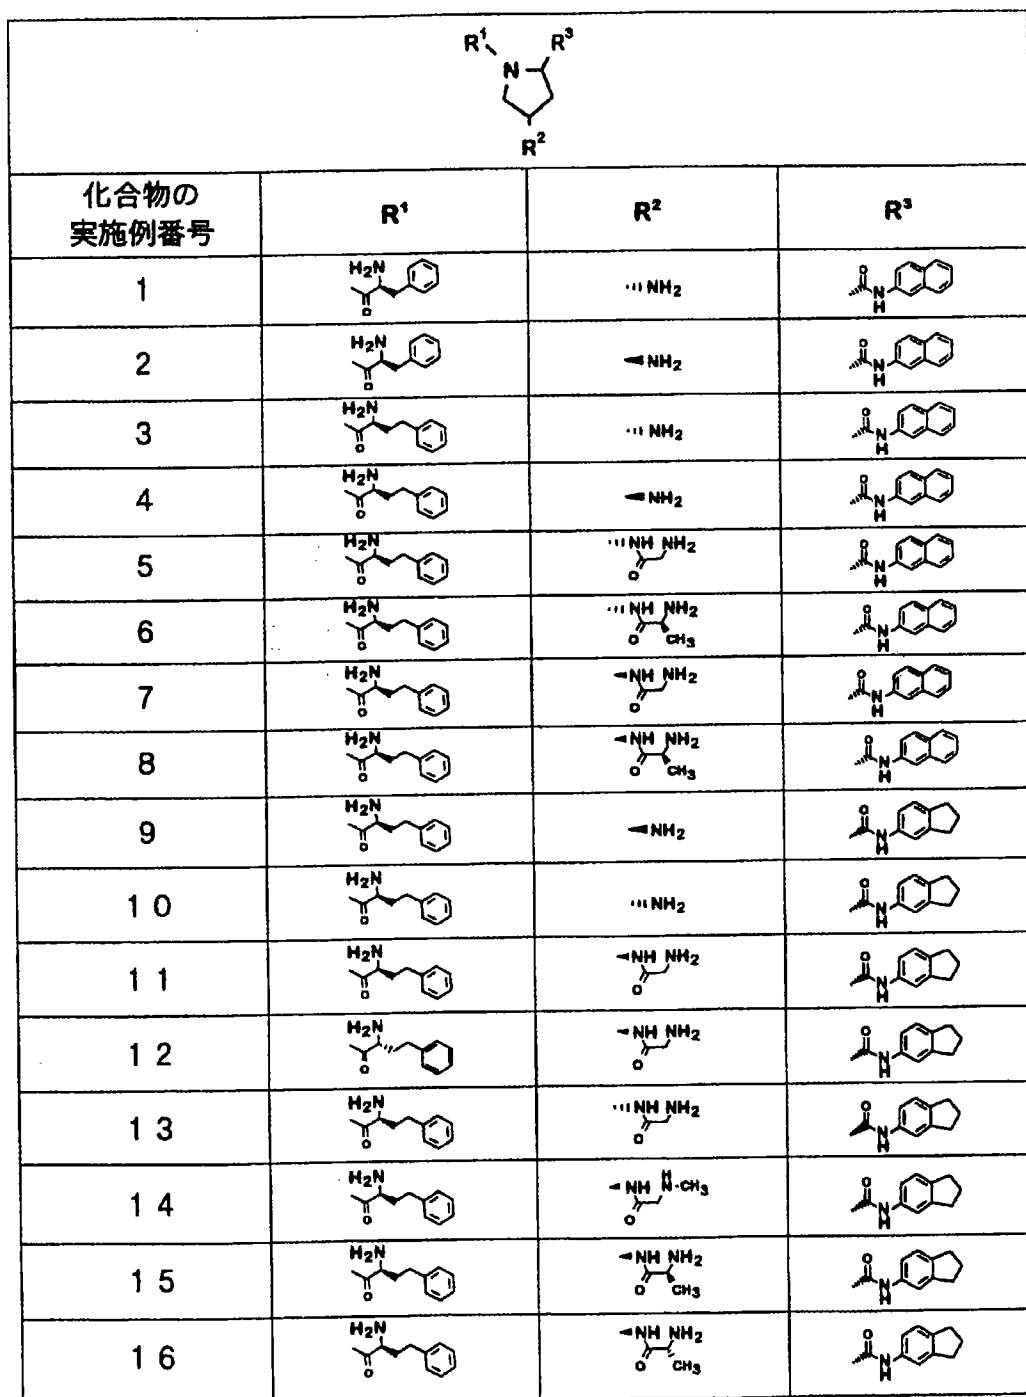 R¹ R³
N
R²
化合物の
実施例番号 R¹ R² R³
1 H₂N O NH₂ O N H
2 H₂N O NH₂ O N H
3 H₂N O NH₂ O N H
4 H₂N O NH₂ O N H
5 H₂N O NH NH₂ O O N H
6 H₂N O NH NH₂ O CH₃ O N H
7 H₂N O NH NH₂ O O N H
8 H₂N O NH NH₂ O CH₃ O N H
9 H₂N O NH₂ O N H
10 H₂N O NH₂ O N H
11 H₂N O NH NH₂ O O N H
12 H₂N O NH NH₂ O O N H
13 H₂N O NH NH₂ O O N H
14 H₂N O NH H N-CH₃ O O N H
15 H₂N O NH NH₂ O CH₃ O N H
16 H₂N O NH NH₂ O CH₃ O N H